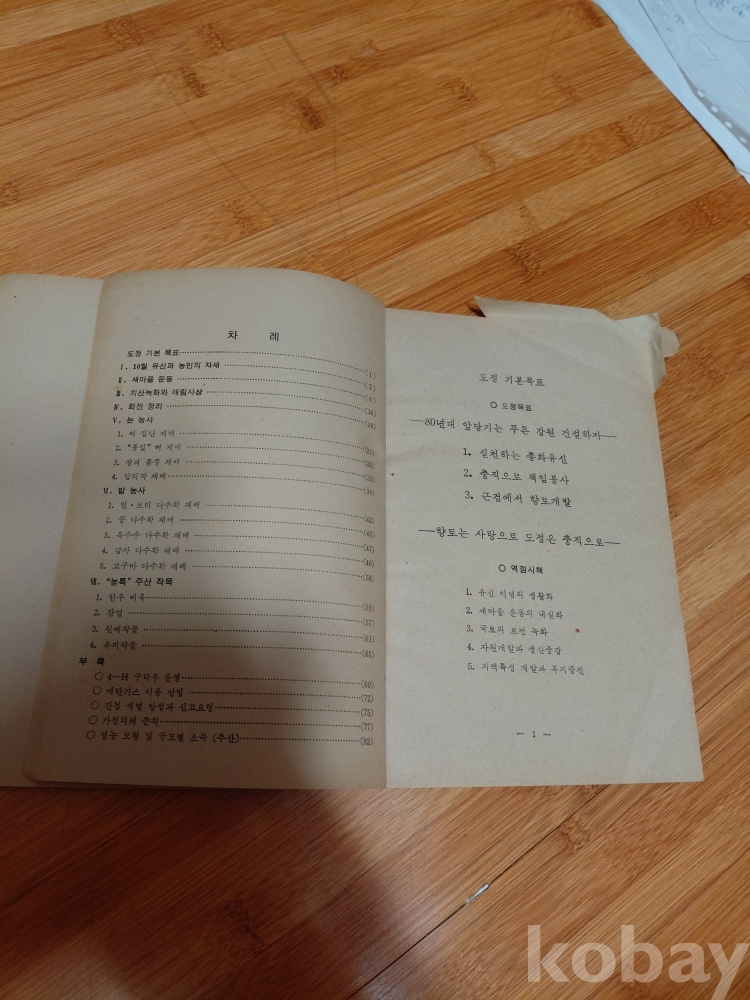 차 례
도정 기본 목표……(1)
Ⅰ. 10월 유신과 농민의 자세……(2)
Ⅱ. 새마을 운동……(6)
Ⅲ. 치산녹화와 애림사상……(16)
Ⅳ. 화전 정리……(19)
Ⅴ. 논 농사
1. 벼 집단 재배……
2. "통일" 벼 재배……
3. 장려 품종 재배……
4. 답리작 재배……
Ⅵ. 밭 농사
1. 밀·보리 다수확 재배……(42)
2. 콩 다수확 재배……(45)
3. 옥수수 다수확 재배……(47)
4. 감자 다수확 재배……(48)
5. 고구마 다수확 재배……(50)
Ⅶ. "농특" 주산 작목
1. 한우 비육……(53)
2. 잠업……(57)
3. 원예작물……(61)
4. 유지작물……(65)
부 록
○ 4—H 구락부 운영……(69)
○ 메탄가스 이용 방법……(72)
○ 간첩 식별 방법과 신고요령……(75)
○ 가정의례 준칙……(77)
○ 영농 모형 및 규모별 소득 (추산)……(82)
도정 기본목표
○ 도정목표
—80년대 앞당기는 푸른 강원 건설하자—
1. 실천하는 총화유신
2. 충직으로 책임봉사
3. 근검에서 향토개발
—향토는 사랑으로 도정은 충직으로—
○ 역점시책
1. 유신 이념의 생활화
2. 새마을 운동의 내실화
3. 국토의 보전 녹화
4. 자원개발과 생산증강
5. 지역특성 개발과 복지증진
— 1 —
kobay